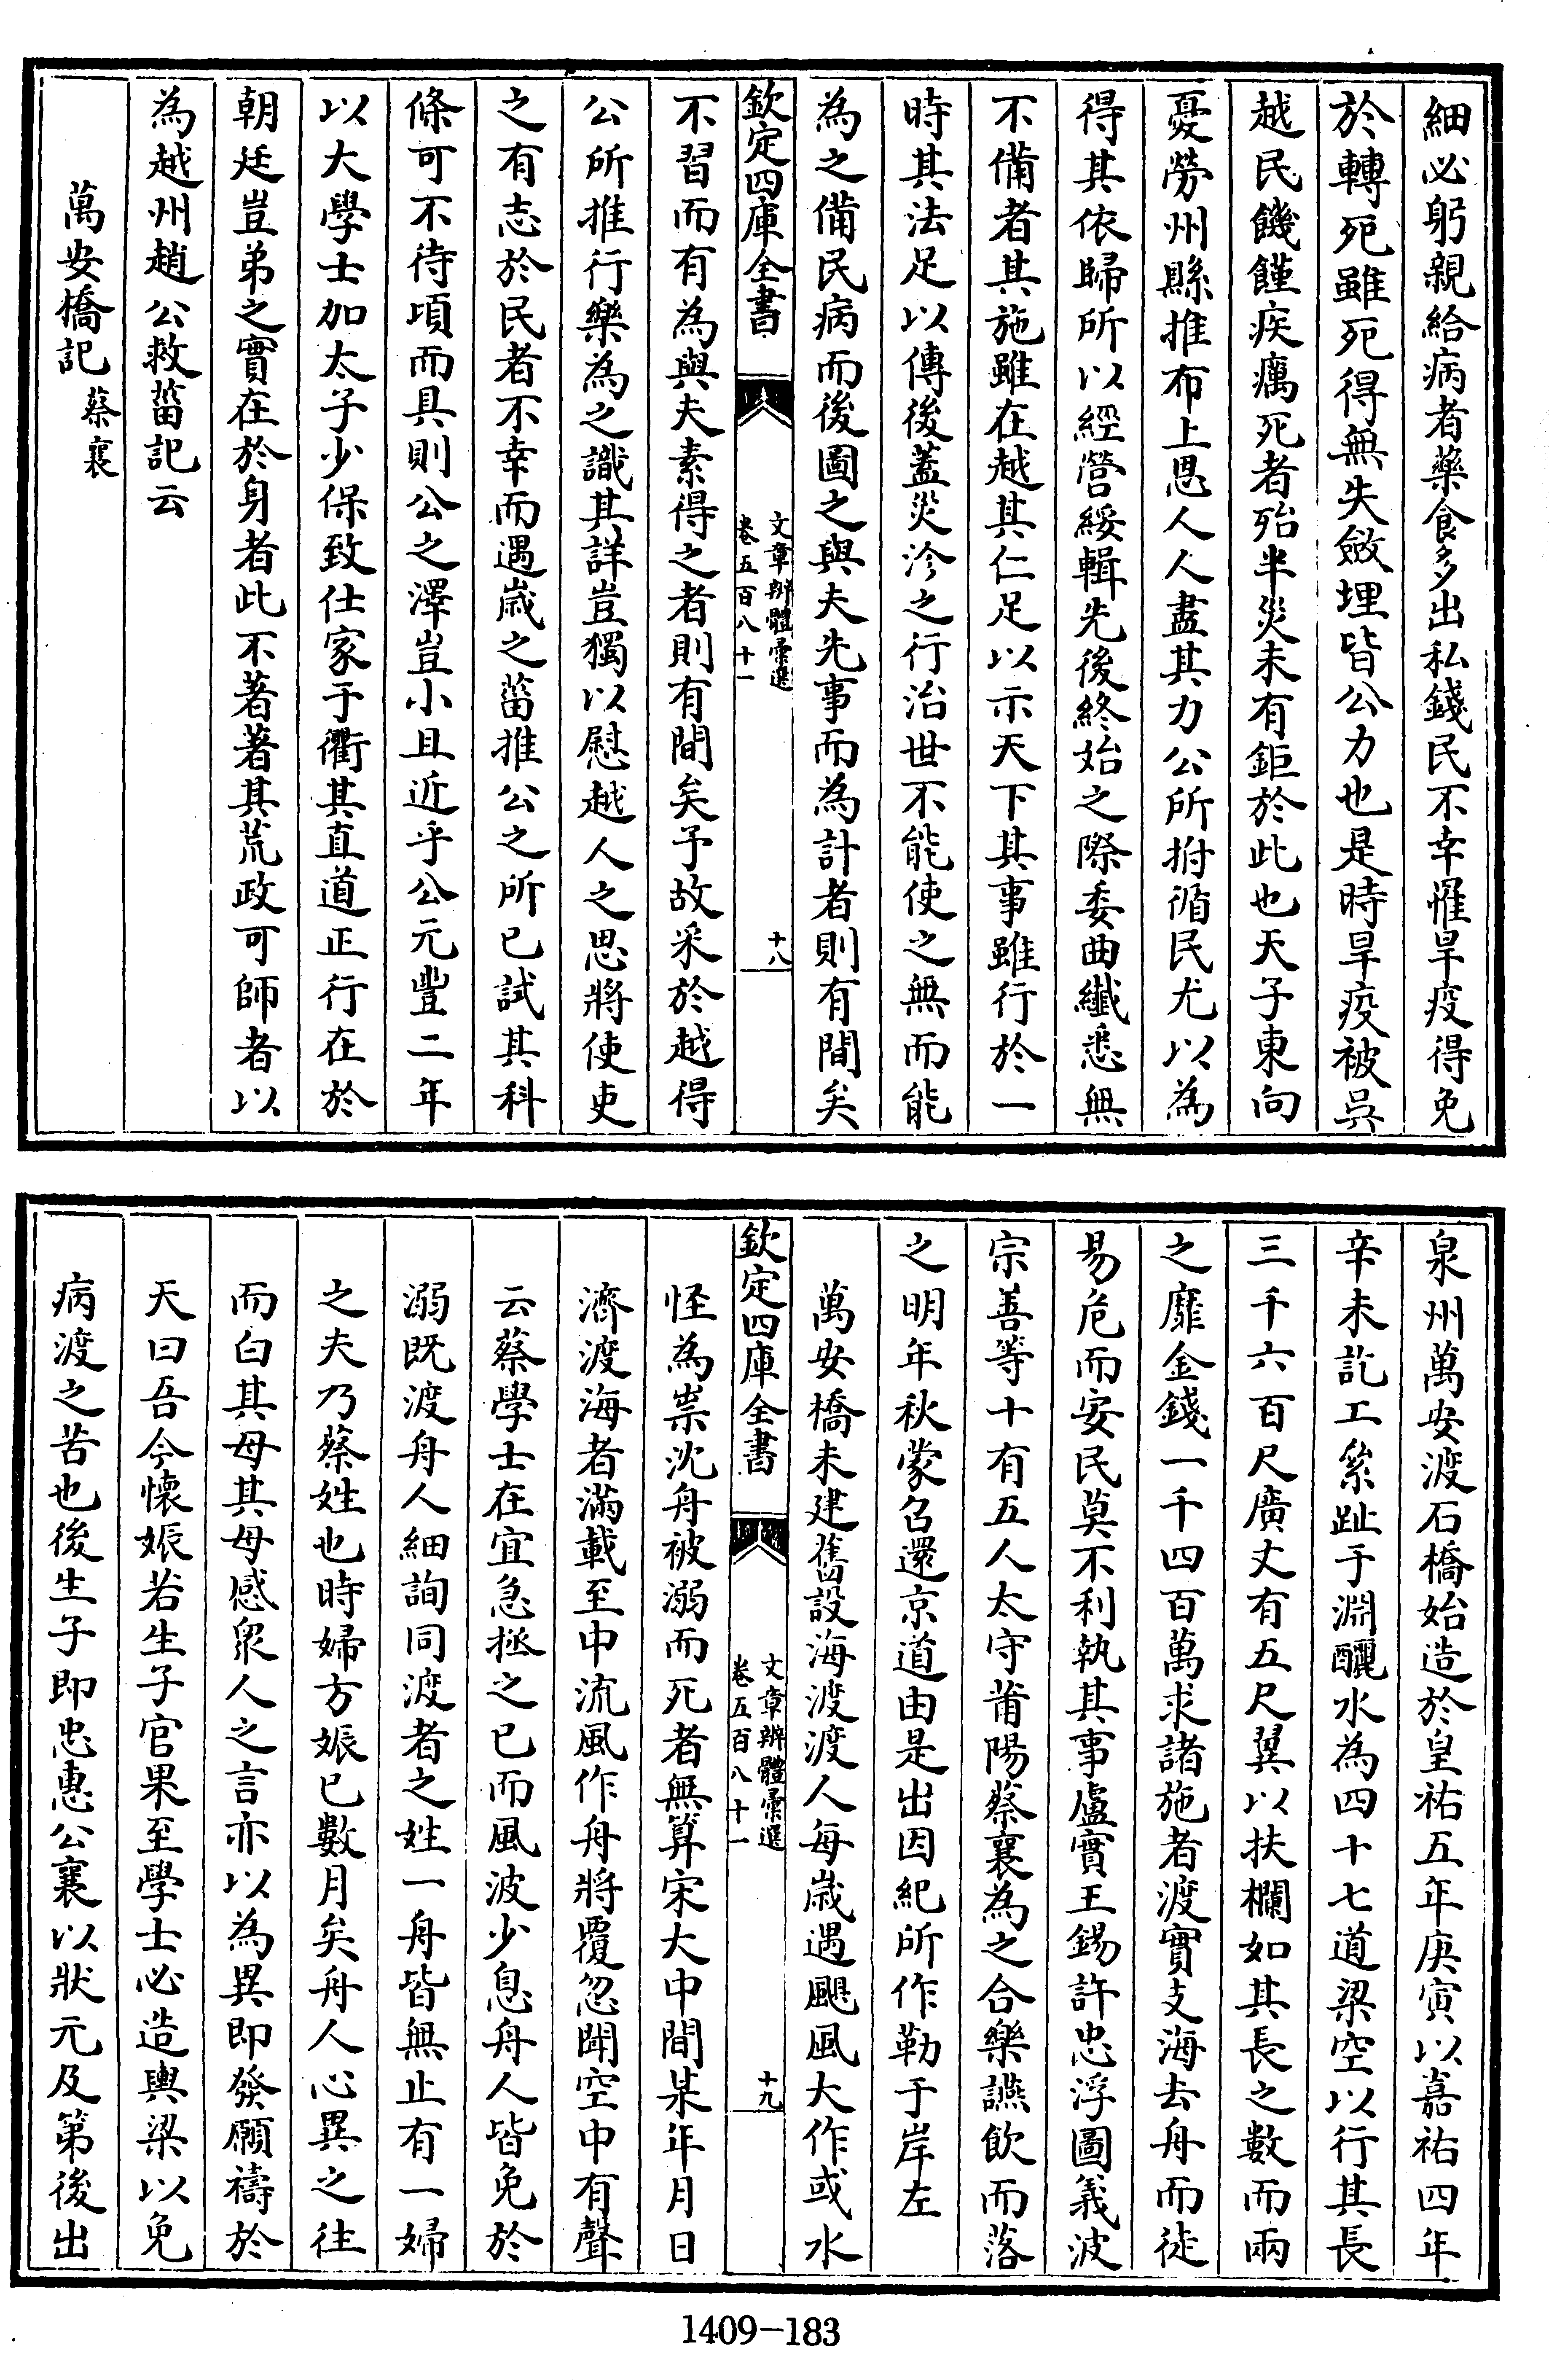 細必躬親給病者藥食多出私錢民不幸罹旱疫得免
於轉死雖死得無失斂埋皆公力也是時旱疫被吳
越民饑饉疾癘死者殆半災未有鉅於此也天子東向
憂勞州縣推布上恩人人盡其力公所拊循民尤以為
得其依歸所以經營綏輯先後終始之際委曲纖悉無
不備者其施雖在越其仁足以示天下其事雖行於一
時其法足以傳後蓋災沴之行治世不能使之無而能
為之備民病而後圖之與夫先事而為計者則有間矣
欽定四庫全書
文章辨體彙選
卷五百八十一
十八
不習而有為與夫素得之者則有間矣予故采於越得
公所推行樂為之識其詳豈獨以慰越人之思將使吏
之有志於民者不幸而遇歲之菑推公之所已試其科
條可不待頃而具則公之澤豈小且近乎公元豐二年
以大學士加太子少保致仕家于衢其直道正行在於
朝廷豈弟之實在於身者此不著著其荒政可師者以
為越州趙公救菑記云
萬安橋記 蔡襄
泉州萬安渡石橋始造於皇祐五年庚寅以嘉祐四年
辛未訖工絫趾于淵釃水為四十七道梁空以行其長
三千六百尺廣丈有五尺翼以扶欄如其長之數而兩
之靡金錢一千四百萬求諸施者渡實支海去舟而徒
易危而安民莫不利執其事盧實王錫許忠浮圖義波
宗善等十有五人太守莆陽蔡襄為之合樂讌飲而落
之明年秋蒙召還京道由是出因紀所作勒于岸左
萬安橋未建舊設海渡渡人每歲遇颶風大作或水
欽定四庫全書
文章辨體彙選
卷五百八十一
十九
怪為祟沈舟被溺而死者無算宋大中間某年月日
濟渡海者滿載至中流風作舟將覆忽聞空中有聲
云蔡學士在宜急拯之已而風波少息舟人皆免於
溺既渡舟人細詢同渡者之姓一舟皆無止有一婦
之夫乃蔡姓也時婦方娠已數月矣舟人心異之往
而白其母其母感衆人之言亦以為異即發願禱於
天曰吾今懷娠若生子官果至學士必造輿梁以免
病渡之苦也後生子即忠惠公襄以狀元及第後出
1409-183